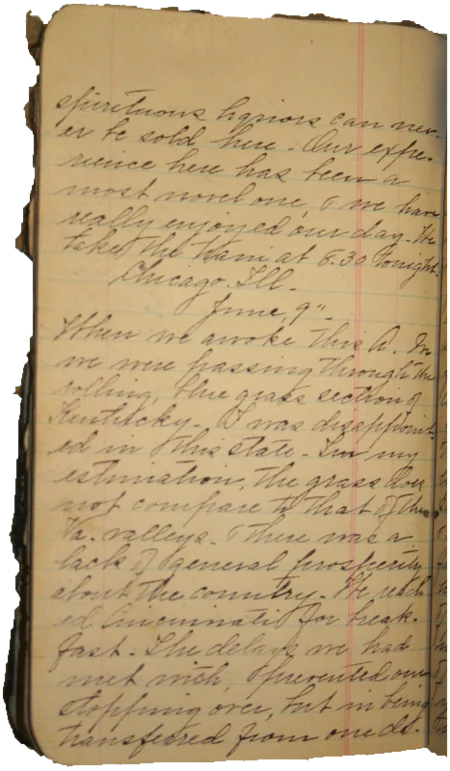 spirituous liquors can nev-
er be sold here. Our expe-
rience here has been a
most novel one, & we have
really enjoyed our day. We
take the train at 6.30 tonight.
Chicago. Ill.
June, 9"
When we awoke this A. M
we were passing through the
rolling, blue grass section of
Kentucky. I was disappoint-
ed in this state. In my
estimation, the grass does
not compare to that of the
Va. valleys. There was a
lack of general prosperity
about the country. We reach-
ed Cincinnati for break-
fast. The delays we had
met with, prevented our
stopping over, but in being
transferred from one de-